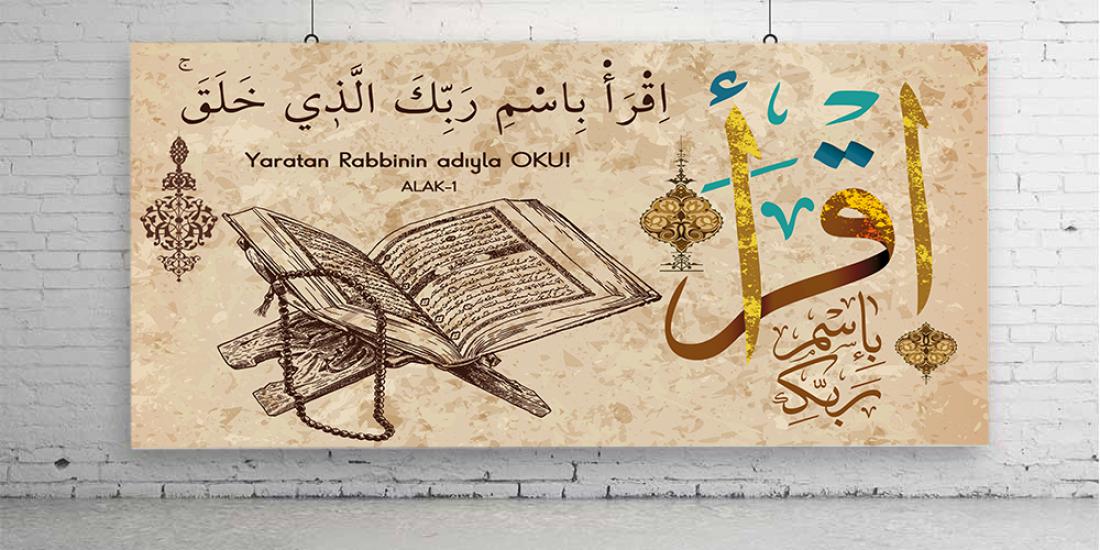 اِقْرَأْ بِاسْمِ رَبِّكَ الَّذٖي خَلَقَۚ
Yaratan Rabbinin adıyla OKU!
ALAK-1
اقرأ
بِاسْمِ
رَبِّكَ